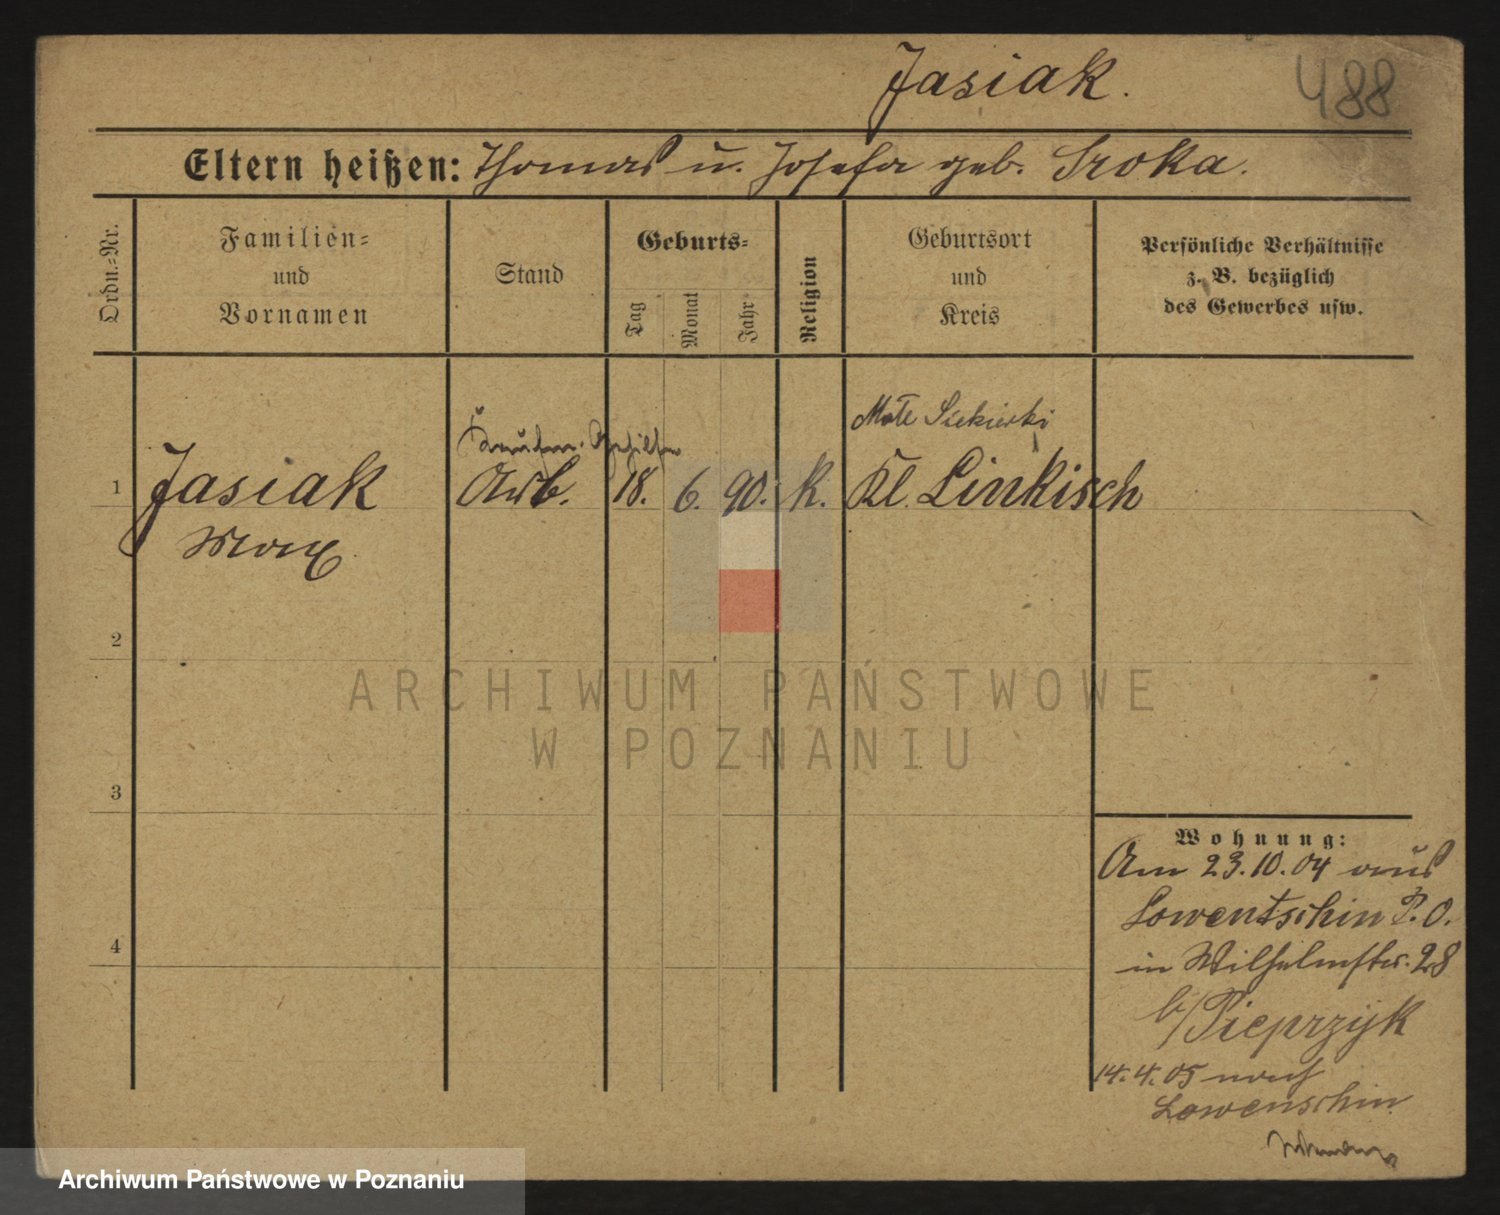 Jasiak.
488
Eltern heißen: Thomas u. Josefa geb. Sroka.
Ordn.-Nr.
Familien-
und
Vornamen
Stand
Geburts-
Tag
Monat
Jahr
Religion
Geburtsort
und
Kreis
Persönliche Verhältnisse
z. B. bezüglich
des Gewerbes usw.
Małe Siekierki
1 Jasiak Arb. 18. 6. 90. K. Kl. Linkisch
Max
2
3
4
Wohnung:
Am 23.10.04 aus
Lowentschin P. O.
in Wilhelmstr. 28
b/ Pieprzyk
14.4.05 nach
Lowenschin
ARCHIWUM PAŃSTWOWE
W POZNANIU
Archiwum Państwowe w Poznaniu